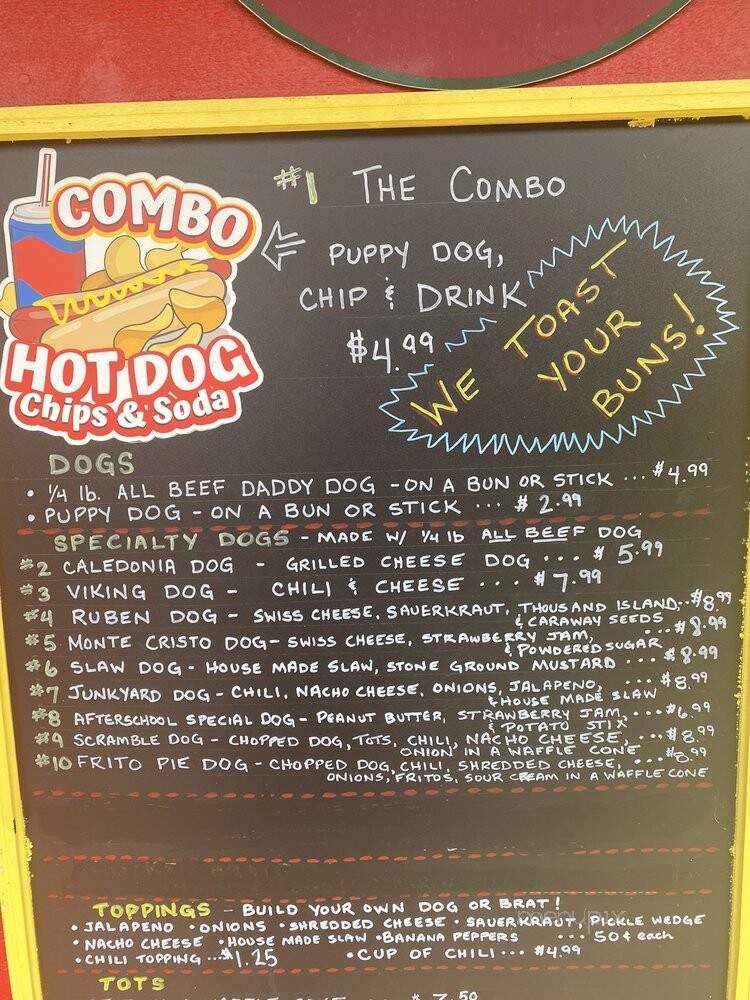 #1 THE COMBO
COMBO
HOT DOG
Chips & Soda
PUPPY DOG,
CHIP & DRINK
$4.99
WE TOAST
YOUR
BUNS!
DOGS
• 1/4 lb. ALL BEEF DADDY DOG - ON A BUN OR STICK ... $4.99
• PUPPY DOG - ON A BUN OR STICK ... $2.99
SPECIALTY DOGS - MADE W/ 1/4 lb ALL BEEF DOG
#2 CALEDONIA DOG - GRILLED CHEESE DOG ... $5.99
#3 VIKING DOG - CHILI & CHEESE ... $7.99
#4 RUBEN DOG - SWISS CHEESE, SAUERKRAUT, THOUSAND ISLAND ... $8.99
& CARAWAY SEEDS
#5 MONTE CRISTO DOG - SWISS CHEESE, STRAWBERRY JAM, ... $8.99
& POWDERED SUGAR
#6 SLAW DOG - HOUSE MADE SLAW, STONE GROUND MUSTARD ... $8.99
#7 JUNKYARD DOG - CHILI, NACHO CHEESE, ONIONS, JALAPENO, ... $8.99
& HOUSE MADE SLAW
#8 AFTERSCHOOL SPECIAL DOG - PEANUT BUTTER, STRAWBERRY JAM ... $6.99
& POTATO STIX
#9 SCRAMBLE DOG - CHOPPED DOG, TOTS, CHILI, NACHO CHEESE, ... $8.99
ONION IN A WAFFLE CONE
#10 FRITO PIE DOG - CHOPPED DOG, CHILI, SHREDDED CHEESE, ... $8.99
ONIONS, FRITOS, SOUR CREAM IN A WAFFLE CONE
TOPPINGS - BUILD YOUR OWN DOG OR BRAT!
• JALAPENO • ONIONS • SHREDDED CHEESE • SAUERKRAUT, PICKLE WEDGE
• NACHO CHEESE • HOUSE MADE SLAW • BANANA PEPPERS ... 50¢ each
• CHILI TOPPING ... $1.25 • CUP OF CHILI ... $4.99
TOTS